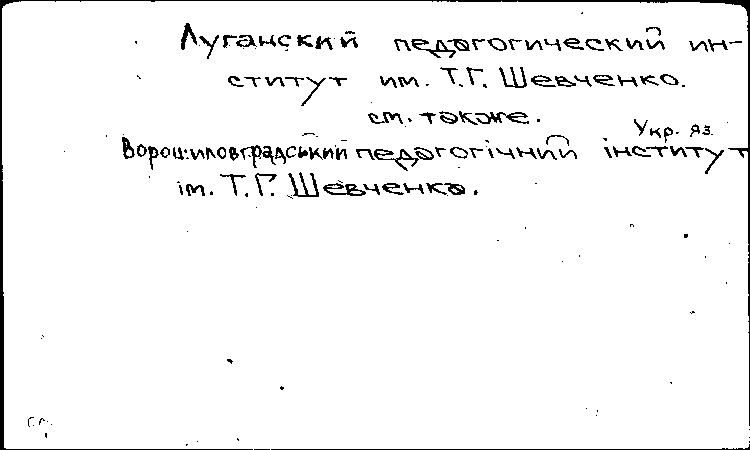 Луганский педагогический ин-
ститут им. Т.Г. Шевченко.
см. также.
Укр. яз.
Ворошиловградський педагогічний інститут
ім. Т.Г. Шевченка.